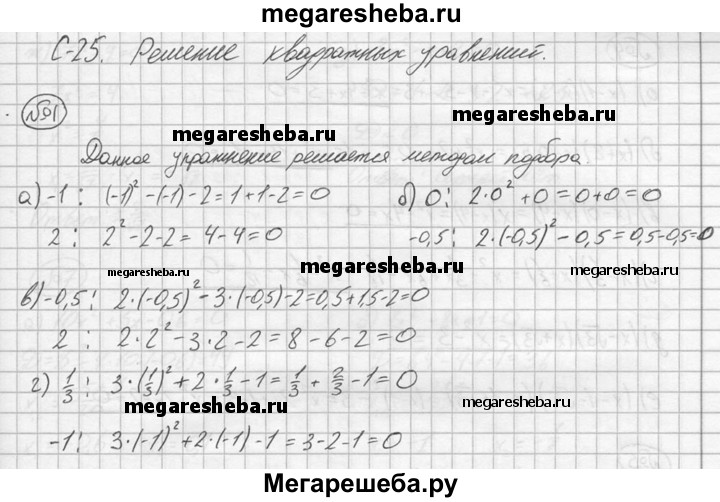 megaresheba.ru
С-25. Решение квадратных уравнений.
№1
megaresheba.ru megaresheba.ru
Данное упражнение решается методом подбора
а) -1 : (-1)² - (-1) - 2 = 1 + 1 - 2 = 0 б) 0 : 2·0² + 0 = 0 + 0 = 0
2 : 2² - 2 - 2 = 4 - 4 = 0 -0,5 : 2·(-0,5)² - 0,5 = 0,5 - 0,5 = 0
megaresheba.ru megaresheba.ru megaresheba.ru
в) -0,5 : 2·(-0,5)² - 3·(-0,5) - 2 = 0,5 + 1,5 - 2 = 0
2 : 2·2² - 3·2 - 2 = 8 - 6 - 2 = 0
г) 1/3 : 3·(1/3)² + 2·1/3 - 1 = 1/3 + 2/3 - 1 = 0
megaresheba.ru megaresheba.ru
-1 : 3·(-1)² + 2·(-1) - 1 = 3 - 2 - 1 = 0
Мегарешеба.ру